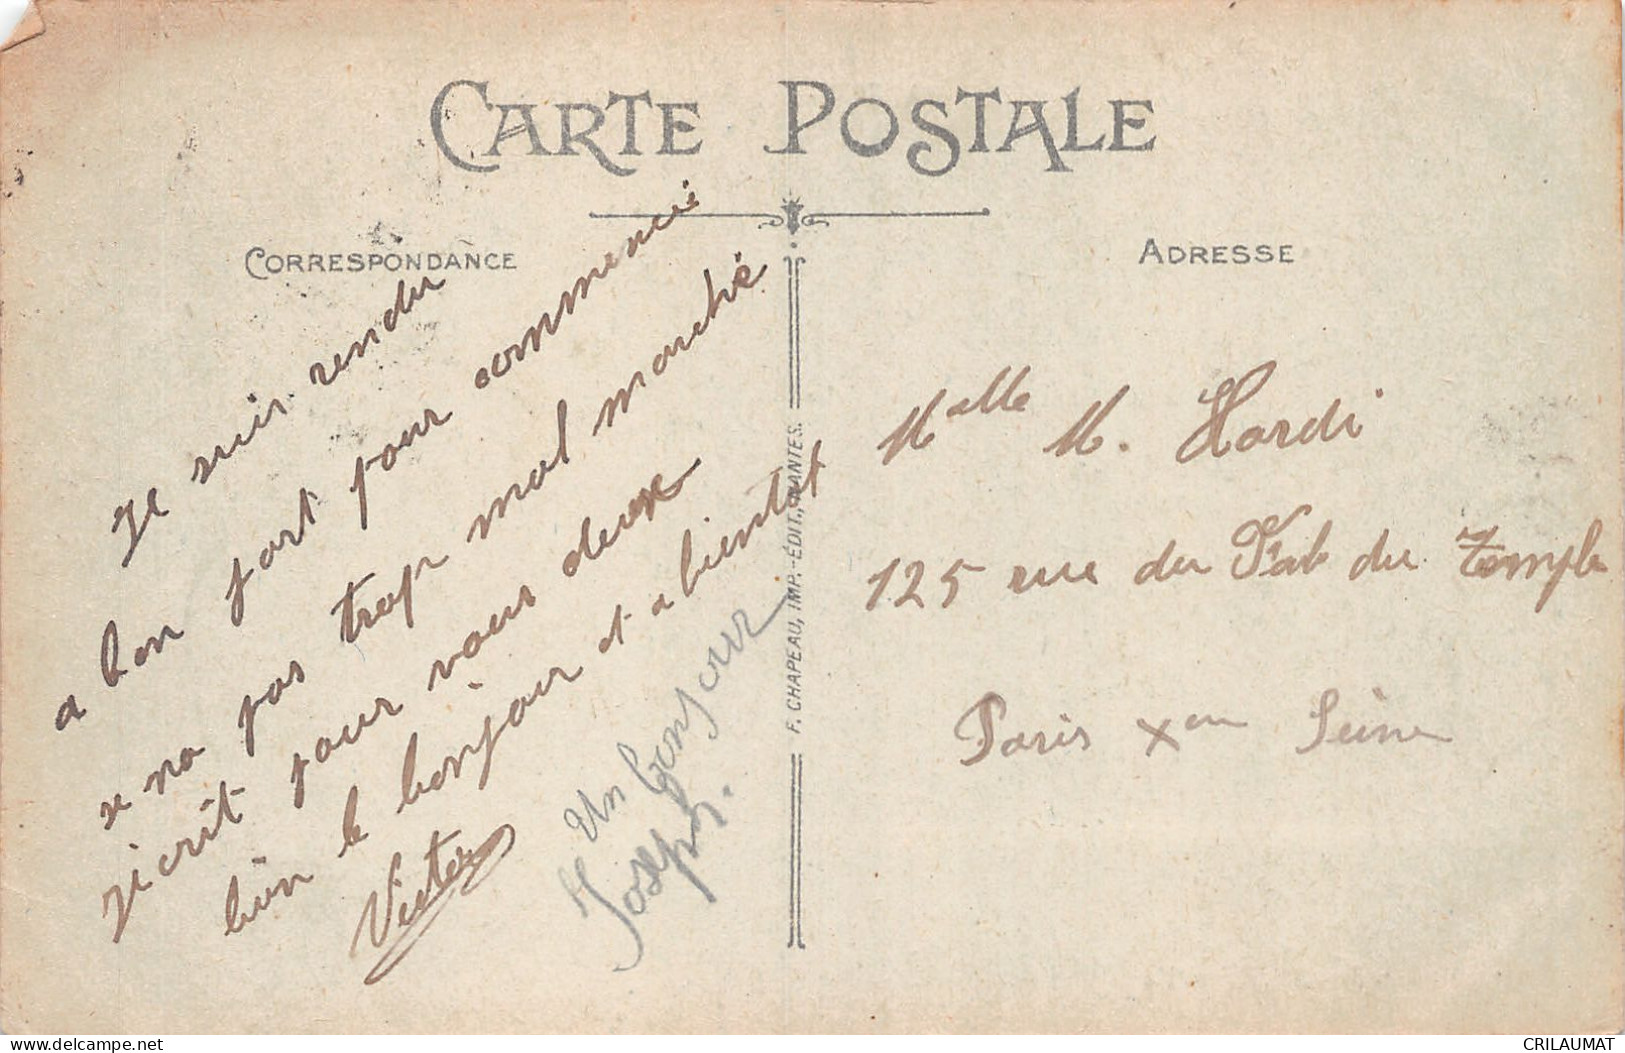 CARTE POSTALE
CORRESPONDANCE
ADRESSE
Je suis rendu
a bon port pour commencé
se na pas trop mal marché
j'écrit pour vous deux
bien le bonjour et a bientot
Victor
Un bonjour
Joseph.
F. CHAPEAU, IMP.-ÉDIT., NANTES.
Melle M. Hardi
125 rue du Fab du Temple
Paris Xem Seine
delcampe.net
CRILAUMAT